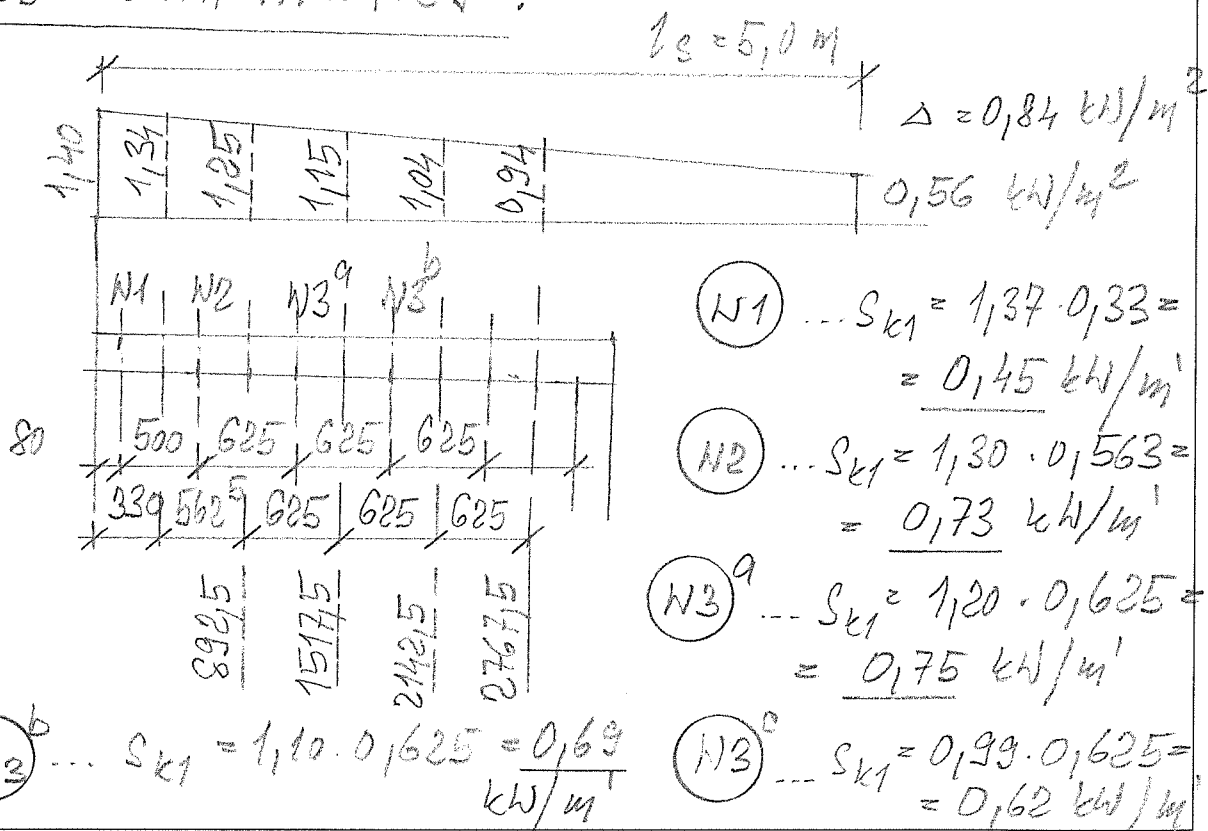 l_s = 5,0 m
Δ = 0,84 kN/m²
1,40 1,34 1,25 1,15 1,04 0,94
0,56 kN/m²
N1 N2 N3ᵃ N3ᵇ
80 500 625 625 625
330 562⁵ 625 625 625
892,5 1517,5 2142,5 2767,5
N1 ... S_k1 = 1,37 · 0,33 =
= 0,45 kN/m'
N2 ... S_k1 = 1,30 · 0,563 =
= 0,73 kN/m'
N3ᵃ ... S_k1 = 1,20 · 0,625 =
= 0,75 kN/m'
3ᵇ ... S_k1 = 1,10 · 0,625 = 0,69
kN/m'
N3ᶜ ... S_k1 = 0,99 · 0,625 =
= 0,62 kN/m'